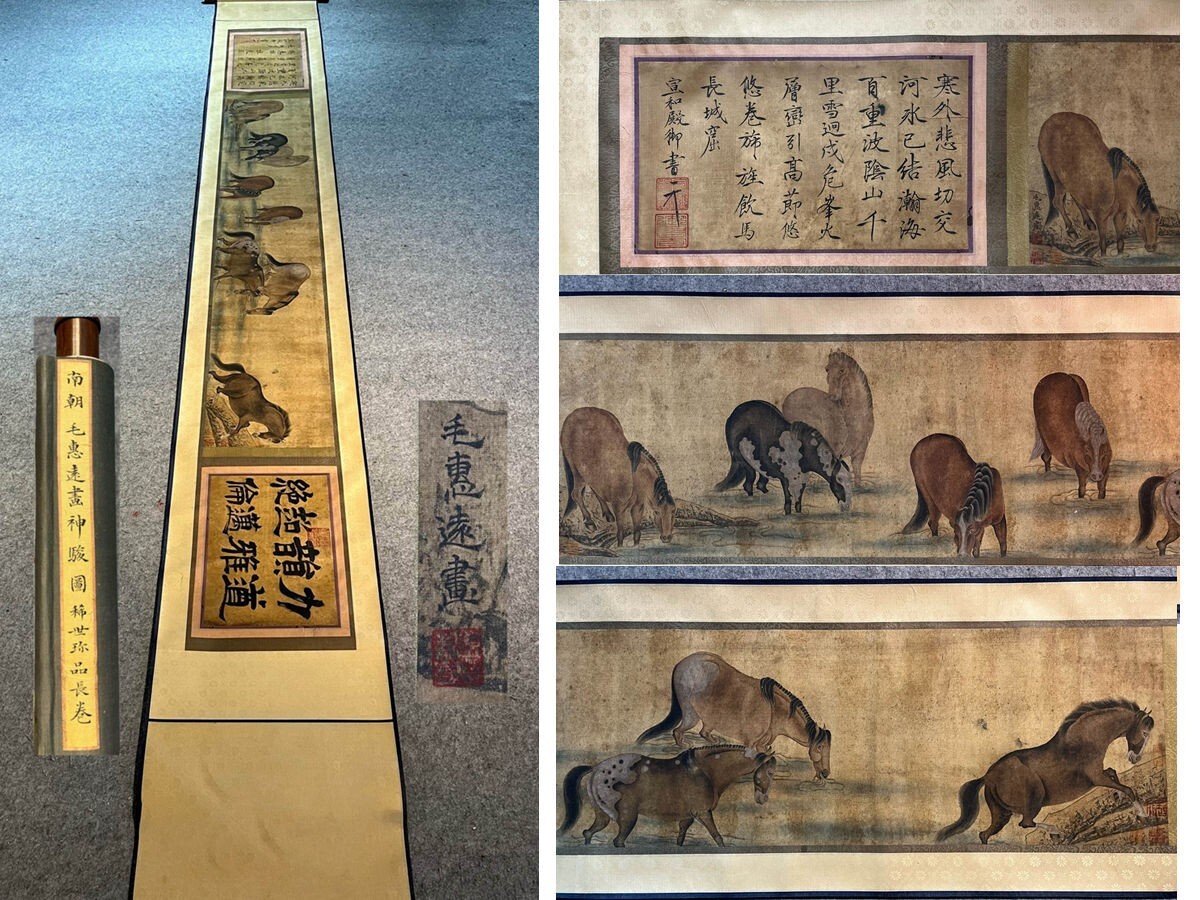 南朝 毛惠遠畫神駿圖 稀世珍品長卷
力道
韻雅
超邁
絕倫
毛惠遠畫
塞外悲風切交
河氷已結瀚海
百重波陰山千
里雪迥戍危峯火
層巒引高節悠
悠卷旆旌飲馬
長城窟
宣和殿御書